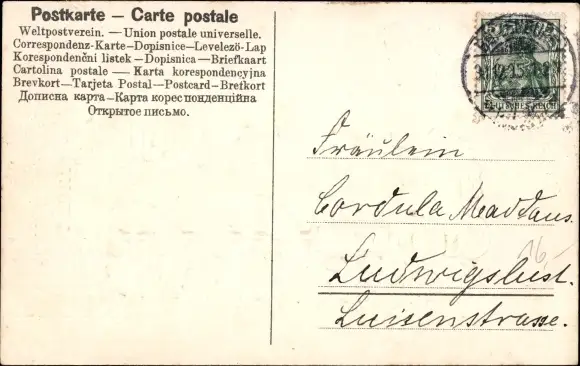 Postkarte – Carte postale
Weltpostverein. — Union postale universelle.
Correspondenz-Karte – Dopisnice – Levelező-Lap
Korespondenční listek – Dopisnica – Briefkaart
Cartolina postale — Karta korespondencyjna
Brevkort – Tarjeta Postal – Postcard – Brefkort
Дописна карта – Карта кореспонденційна
Открытое письмо.
DEUTSCHES REICH
Fräulein
Cordula Maddaus
16
Ludwigslust.
Luisenstrasse.